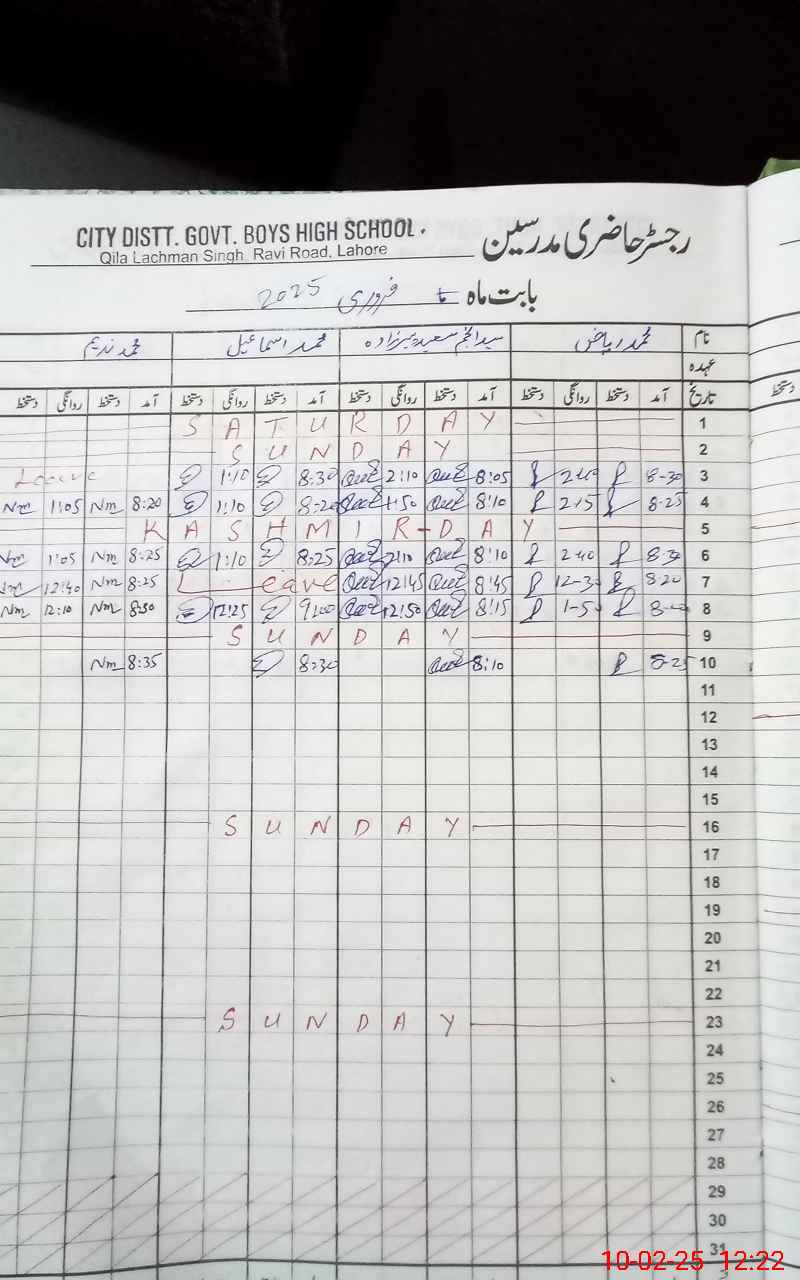 CITY DISTT. GOVT. BOYS HIGH SCHOOL.
Qila Lachman Singh, Ravi Road, Lahore
رجسٹر حاضری مدرسین
بابت ماہ فروری 2025
نام محمد ریاض سعید پیرزادہ محمد اسماعیل محمد ندیم
عہدہ
تاریخ آمد دستخط روانگی دستخط آمد دستخط روانگی دستخط آمد دستخط روانگی دستخط آمد دستخط روانگی دستخط
دستخط
SATURDAY 1
SUNDAY 2
Leave 1:10 8:30 2:10 8:05 2-40 8-30 3
Nm 1:05 Nm 8:20 1:10 8:20 1:50 8:10 2-15 8-25 4
KASHMIR-DAY 5
Nm 1:05 Nm 8:25 1:10 8:25 2:10 8:10 2-40 8-30 6
Nm 12:40 Nm 8:25 Leave 12:45 8:45 12-30 8-20 7
Nm 12:10 Nm 8:30 12:25 9:00 12:50 8:15 1-50 8
SUNDAY 9
Nm 8:35 8:30 8:10 8-25 10
11
12
13
14
15
SUNDAY 16
17
18
19
20
21
22
SUNDAY 23
24
25
26
27
28
29
30
31
10-02-25 12:22